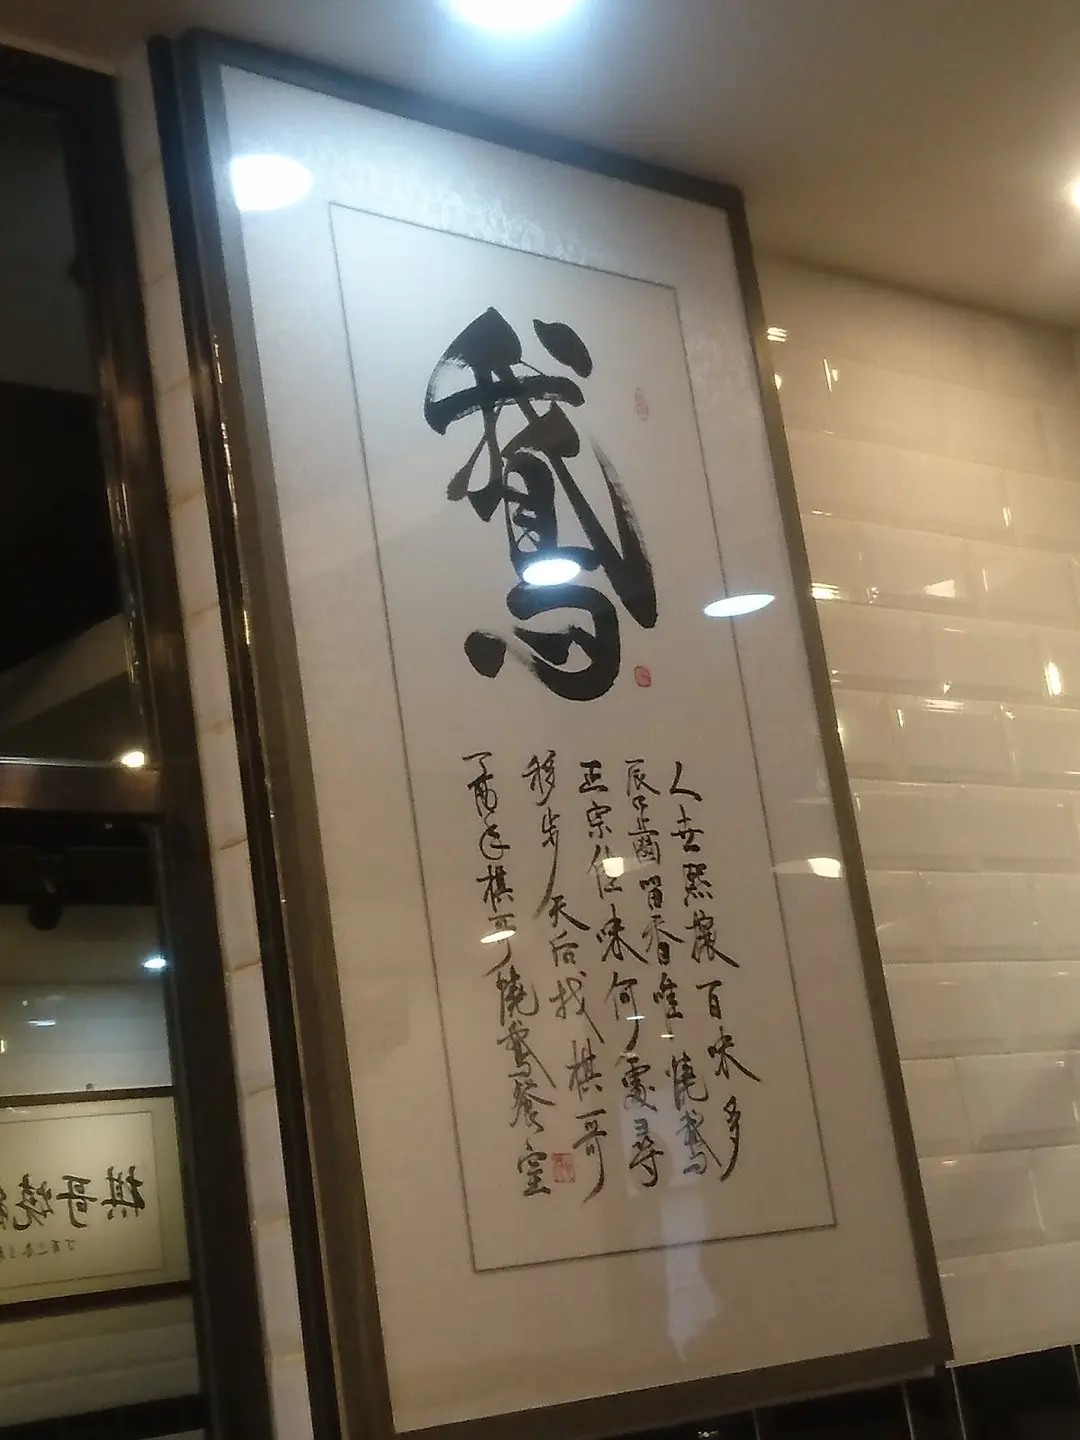 鵝
人世熙攘百味多
唇齒留香唯燒鵝
正宗佳味何處尋
移步天后找棋哥
丁酉年棋哥燒鵝餐室
棋哥燒